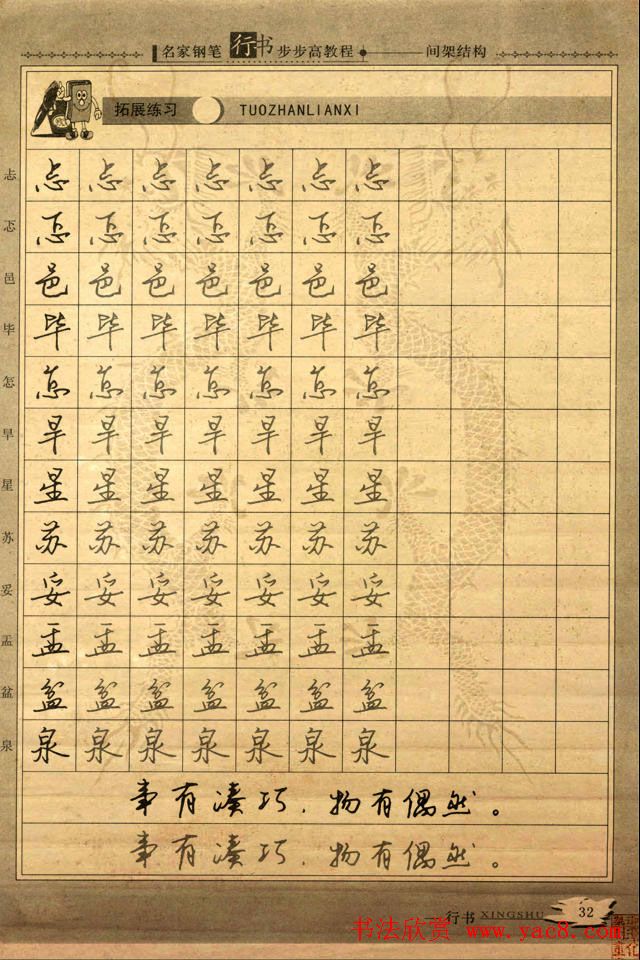 名家钢笔行书步步高教程 ● ——— 间架结构
拓展练习 TUOZHANLIANXI
忐 忐 忐 忐 忐 忐 忐 忐
忑 忑 忑 忑 忑 忑 忑 忑
邑 邑 邑 邑 邑 邑 邑 邑
毕 毕 毕 毕 毕 毕 毕 毕
怎 怎 怎 怎 怎 怎 怎 怎
旱 旱 旱 旱 旱 旱 旱 旱
星 星 星 星 星 星 星 星
苏 苏 苏 苏 苏 苏 苏 苏
妥 妥 妥 妥 妥 妥 妥 妥
盂 盂 盂 盂 盂 盂 盂 盂
盆 盆 盆 盆 盆 盆 盆 盆
泉 泉 泉 泉 泉 泉 泉 泉
事有凑巧，物有偶然。
事有凑巧，物有偶然。
行书 XINGSHU 32
书法欣赏 www.yac8.com